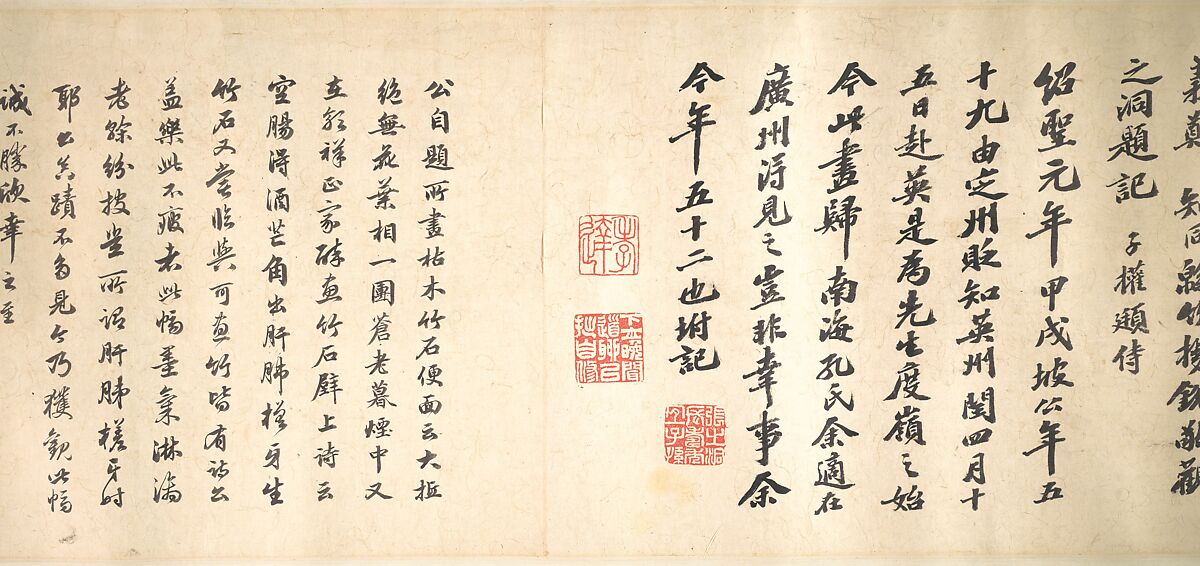 敬觀
之洞題記 子權頲侍
紹聖元年甲戌坡公年五
十九由定州貶知英州閏四月十
五日赴英是為先生度嶺之始
今此畫歸南海孔氏余適在
廣州得見之豈非幸事余
今年五十二也坿記
公自題所畫枯木竹石便面云大抵
絕無花葉相一團蒼老暮煙中又
在郭祥正家醉畫竹石壁上詩云
空腸得酒芒角出肝肺槎牙生
竹石又嘗臨與可畫竹皆有詩公
蓋樂此不疲者此幅墨氣淋漓
老紛披豈所謂肝肺槎牙時
耶公真蹟不多見今乃獲觀此幅
誠不勝欣幸之至